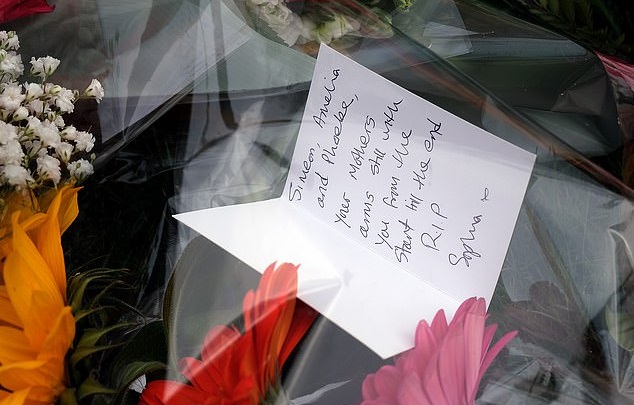 Simeon, Amelia
and Phoebe,
your Mothers
arms still with
you from the
start till the end
R.I.P
Sophia x